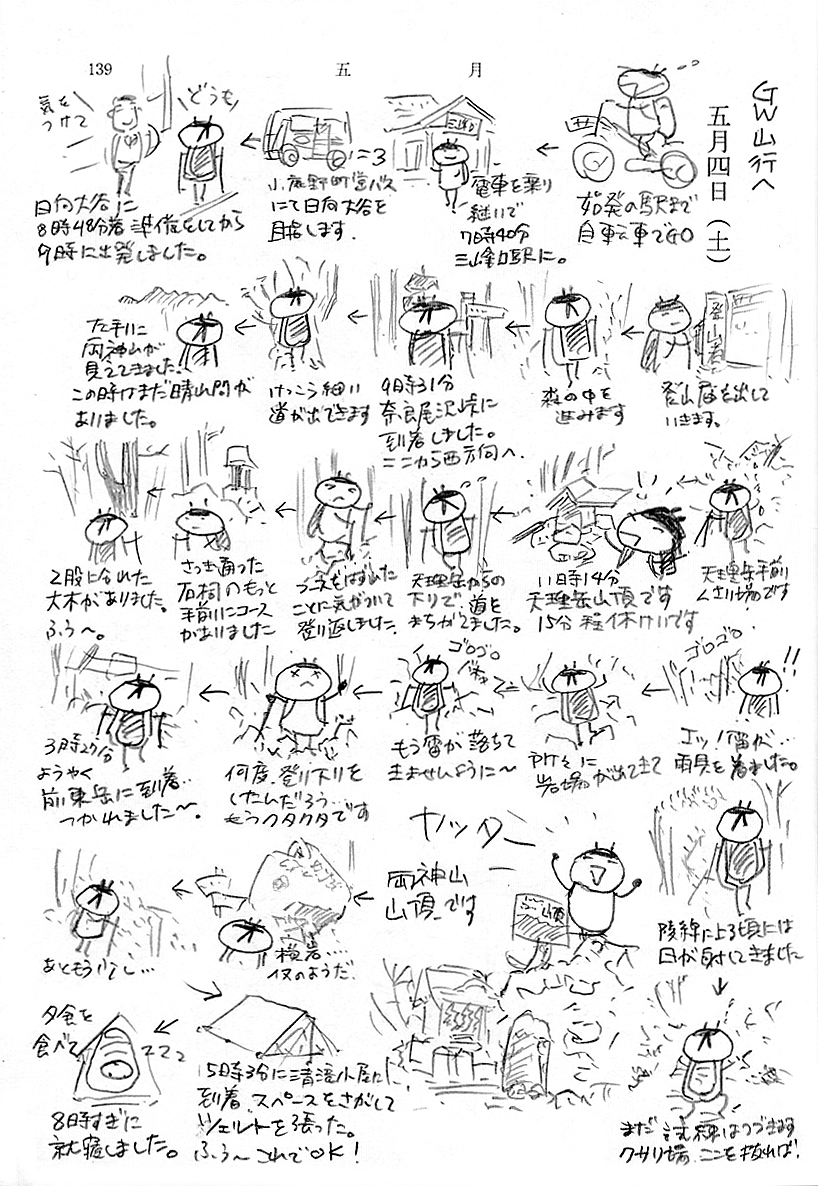 139
五
月
GW山行へ
五月四日(土)
始発の駅まで
自転車でGO
三峰口
電車を乗り
継いで
7時40分
三峰口駅に。
小鹿野町営バス
にて日向大谷を
目指します.
どうも
気を
つけて
日向大谷に
8時48分着 準備をしてから
9時に出発しました。
登山者
登山届を出して
いきます。
森の中を
進みます
9時31分
奈良尾沢峠に
到着しました。
ここから西方向へ.
けっこう細い
道が出てきます
左手に
両神山が
見えてきました!
この時はまだ晴れ間が
ありました。
天理岳手前
くさり場です
11時14分
天理岳山頂です
15分程休けいです
天理岳からの
下りで道を
まちがえました。
コースをはずれた
ことに気がついて
登り返しました.
さっき通った
石祠のもっと
手前にコース
がありました
2股に分れた
大木がありました。
ふう〜。
ゴロゴロ
!!
エッ!雷が…
雨具を着ました。
所々に
岩場が出てきて
ゴロゴロ
もう雷が落ちて
きませんように〜
何度、登り下りを
したんだろう…
もうクタクタです
3時27分
ようやく
前東岳に到着…
つかれました〜。
稜線に上る頃には
日が射してきました
まだ試練はつづきます
クサリ場、ここを抜れば!
ヤッター
山頂
両神山
山頂です
横岩…
仮のようだ.
あともう少し…
15時3分に清滝小屋に
到着 スペースをさがして
ツェルトを張った。
ふう〜これでOK!
夕食を
食べて
zzzz
8時すぎに
就寝しました。